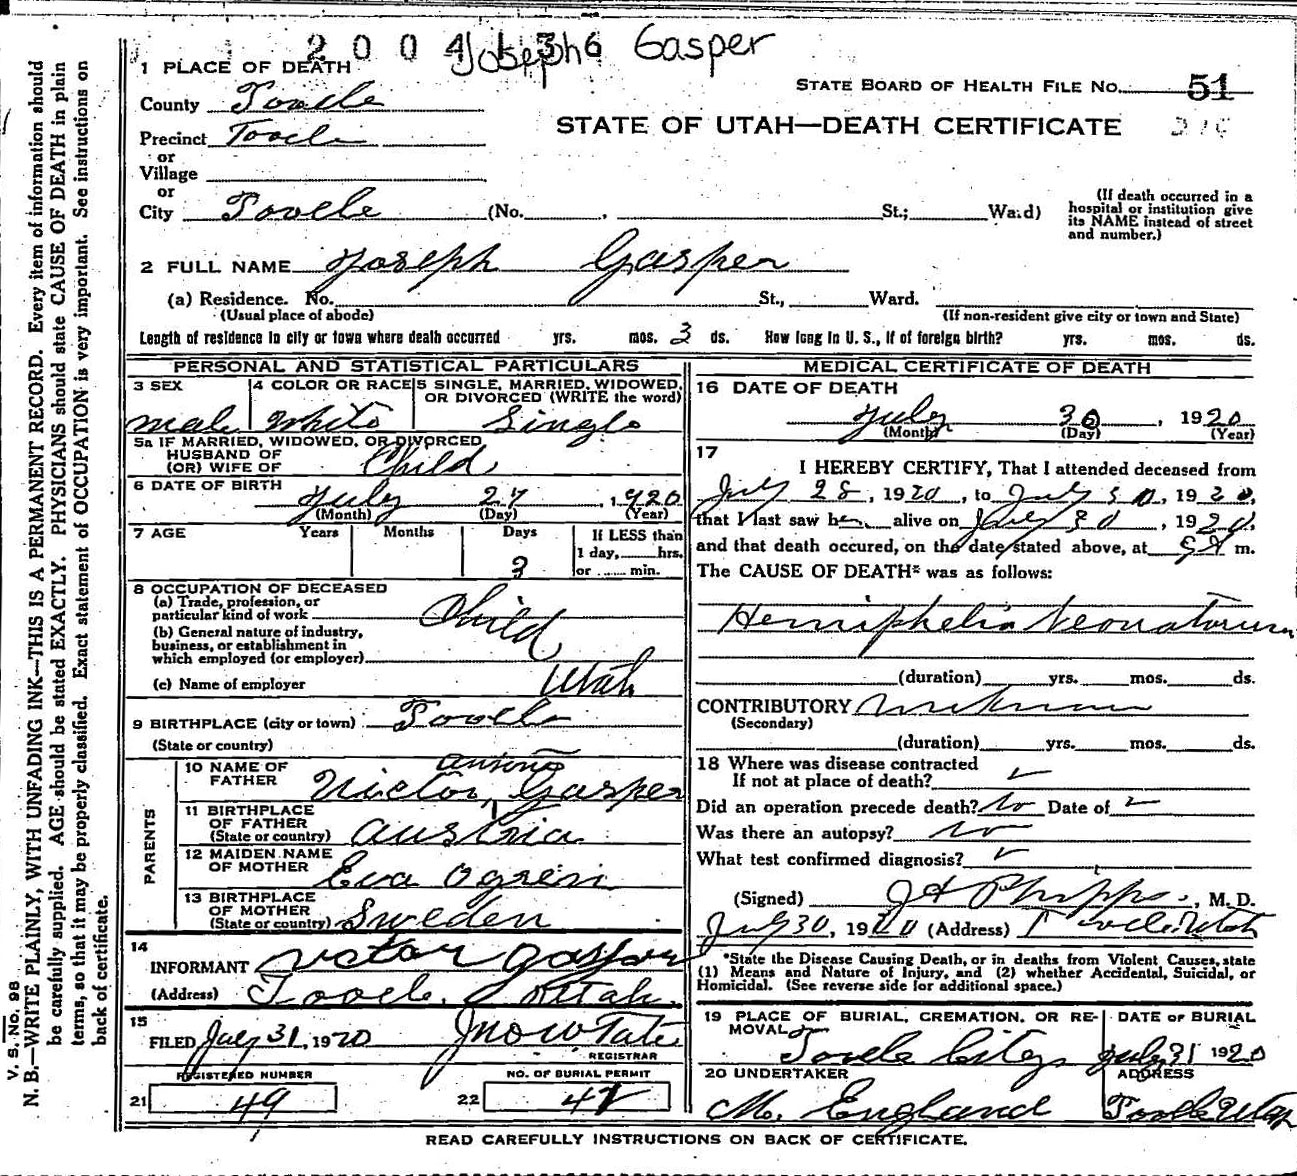 2004136 Joseph Gasper
1 PLACE OF DEATH
STATE BOARD OF HEALTH FILE NO. 51
County Tooele
STATE OF UTAH—DEATH CERTIFICATE
Precinct Tooele
or
Village
or
City Tooele (No. , St.; Ward)
(If death occurred in a hospital or institution give its NAME instead of street and number.)
2 FULL NAME Joseph Gasper
(a) Residence. No. St., Ward.
(Usual place of abode) (If non-resident give city or town and State)
Length of residence in city or town where death occurred yrs. mos. 3 ds. How long in U. S., if of foreign birth? yrs. mos. ds.
PERSONAL AND STATISTICAL PARTICULARS
3 SEX 4 COLOR OR RACE 5 SINGLE, MARRIED, WIDOWED,
OR DIVORCED (WRITE the word)
male White Single
5a IF MARRIED, WIDOWED, OR DIVORCED
HUSBAND OF
(OR) WIFE OF Child
6 DATE OF BIRTH
July 27, 1920
(Month) (Day) (Year)
7 AGE Years Months Days If LESS than
1 day, hrs.
3 or min.
8 OCCUPATION OF DECEASED
(a) Trade, profession, or
particular kind of work Child
(b) General nature of industry,
business, or establishment in
which employed (or employer)
(c) Name of employer
Utah
9 BIRTHPLACE (city or town) Tooele
(State or country)
PARENTS
10 NAME OF
FATHER Victor Gasper
11 BIRTHPLACE
OF FATHER
(State or country) Austria
12 MAIDEN NAME
OF MOTHER Eva Ogrin
13 BIRTHPLACE
OF MOTHER
(State or country) Sweden
14
INFORMANT Victor Gasper
(Address) Tooele, Utah.
15
FILED July 31, 1920 Jno W Tate
REGISTRAR
REGISTERED NUMBER NO. OF BURIAL PERMIT
21 49 22 42
MEDICAL CERTIFICATE OF DEATH
16 DATE OF DEATH
July 30, 1920
(Month) (Day) (Year)
17
I HEREBY CERTIFY, That I attended deceased from
July 28, 1920, to July 30, 1920,
that I last saw h alive on July 30, 1920,
and that death occured, on the date stated above, at m.
The CAUSE OF DEATH* was as follows:
Hemiphelia Neonatorum
(duration) yrs. mos. ds.
CONTRIBUTORY unknown
(Secondary)
(duration) yrs. mos. ds.
18 Where was disease contracted
If not at place of death?
Did an operation precede death? No Date of
Was there an autopsy? No
What test confirmed diagnosis?
(Signed) J A Phipps, M. D.
July 30, 1920 (Address) Tooele Utah
*State the Disease Causing Death, or in deaths from Violent Causes, state
(1) Means and Nature of Injury, and (2) whether Accidental, Suicidal, or
Homicidal. (See reverse side for additional space.)
19 PLACE OF BURIAL, CREMATION, OR RE- DATE OF BURIAL
MOVAL
Tooele City July 31 1920
20 UNDERTAKER ADDRESS
M. England Tooele Utah
READ CAREFULLY INSTRUCTIONS ON BACK OF CERTIFICATE.
V. S. No. 98
N. B.—WRITE PLAINLY, WITH UNFADING INK—THIS IS A PERMANENT RECORD. Every item of information should
be carefully supplied. AGE should be stated EXACTLY. PHYSICIANS should state CAUSE OF DEATH in plain
terms, so that it may be properly classified. Exact statement of OCCUPATION is very important. See instructions on
back of certificate.